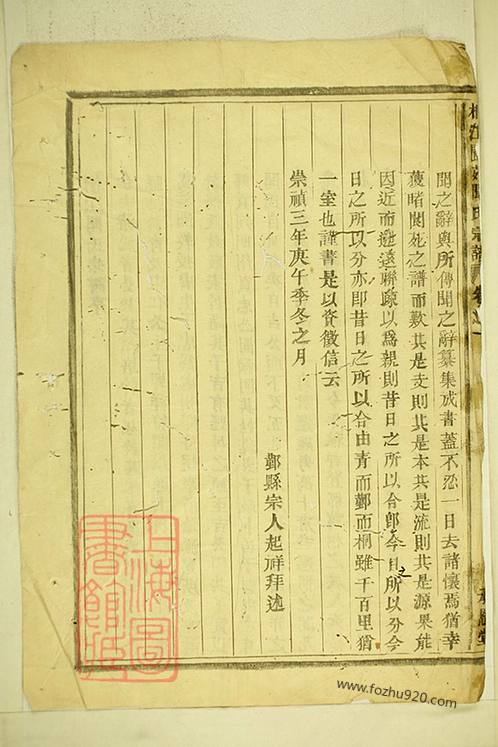 聞之辭與所傳聞之辭纂集成書蓋不忍一日去諸懷焉猶幸
獲睹閔氏之譜而歎其是支則共是本共是流則共是源果能
因近而遡遠聯疎以爲親則昔日之所以合即今日之所以分今
日之所以分亦即昔日之所以合由青而鄞而桐雖千百里猶
一室也謹書是以資徵信云
崇禎三年庚午季冬之月
鄞縣宗人起祥拜述
氏宗譜
卷之
堂
上海圖
書館藏
www.fozhu920.com